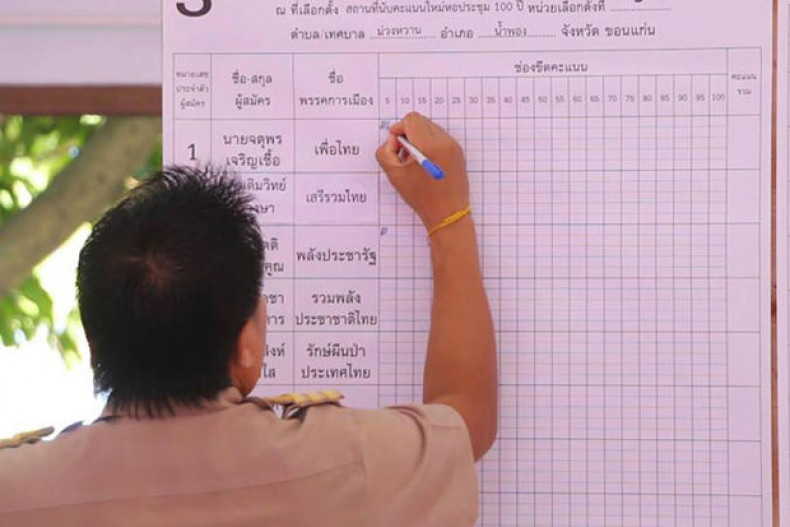 ณ ที่เลือกตั้ง สถานที่นับคะแนนใหม่หอประชุม 100 ปี หน่วยเลือกตั้งที่
ตำบล/เทศบาล ม่วงหวาน อำเภอ น้ำพอง จังหวัด ขอนแก่น
หมายเลข
ประจำตัว
ผู้สมัคร
ชื่อ-สกุล
ผู้สมัคร
ชื่อ
พรรคการเมือง
ช่องขีดคะแนน
5 10 15 20 25 30 35 40 45 50 55 60 65 70 75 80 85 90 95 100
คะแนน
รวม
1
นายจตุพร
เจริญเชื้อ
เพื่อไทย
เติมวิทย์
เสรีรวมไทย
พลังประชารัฐ
รวมพลัง
ประชาชาติไทย
รักษ์ผืนป่า
ประเทศไทย